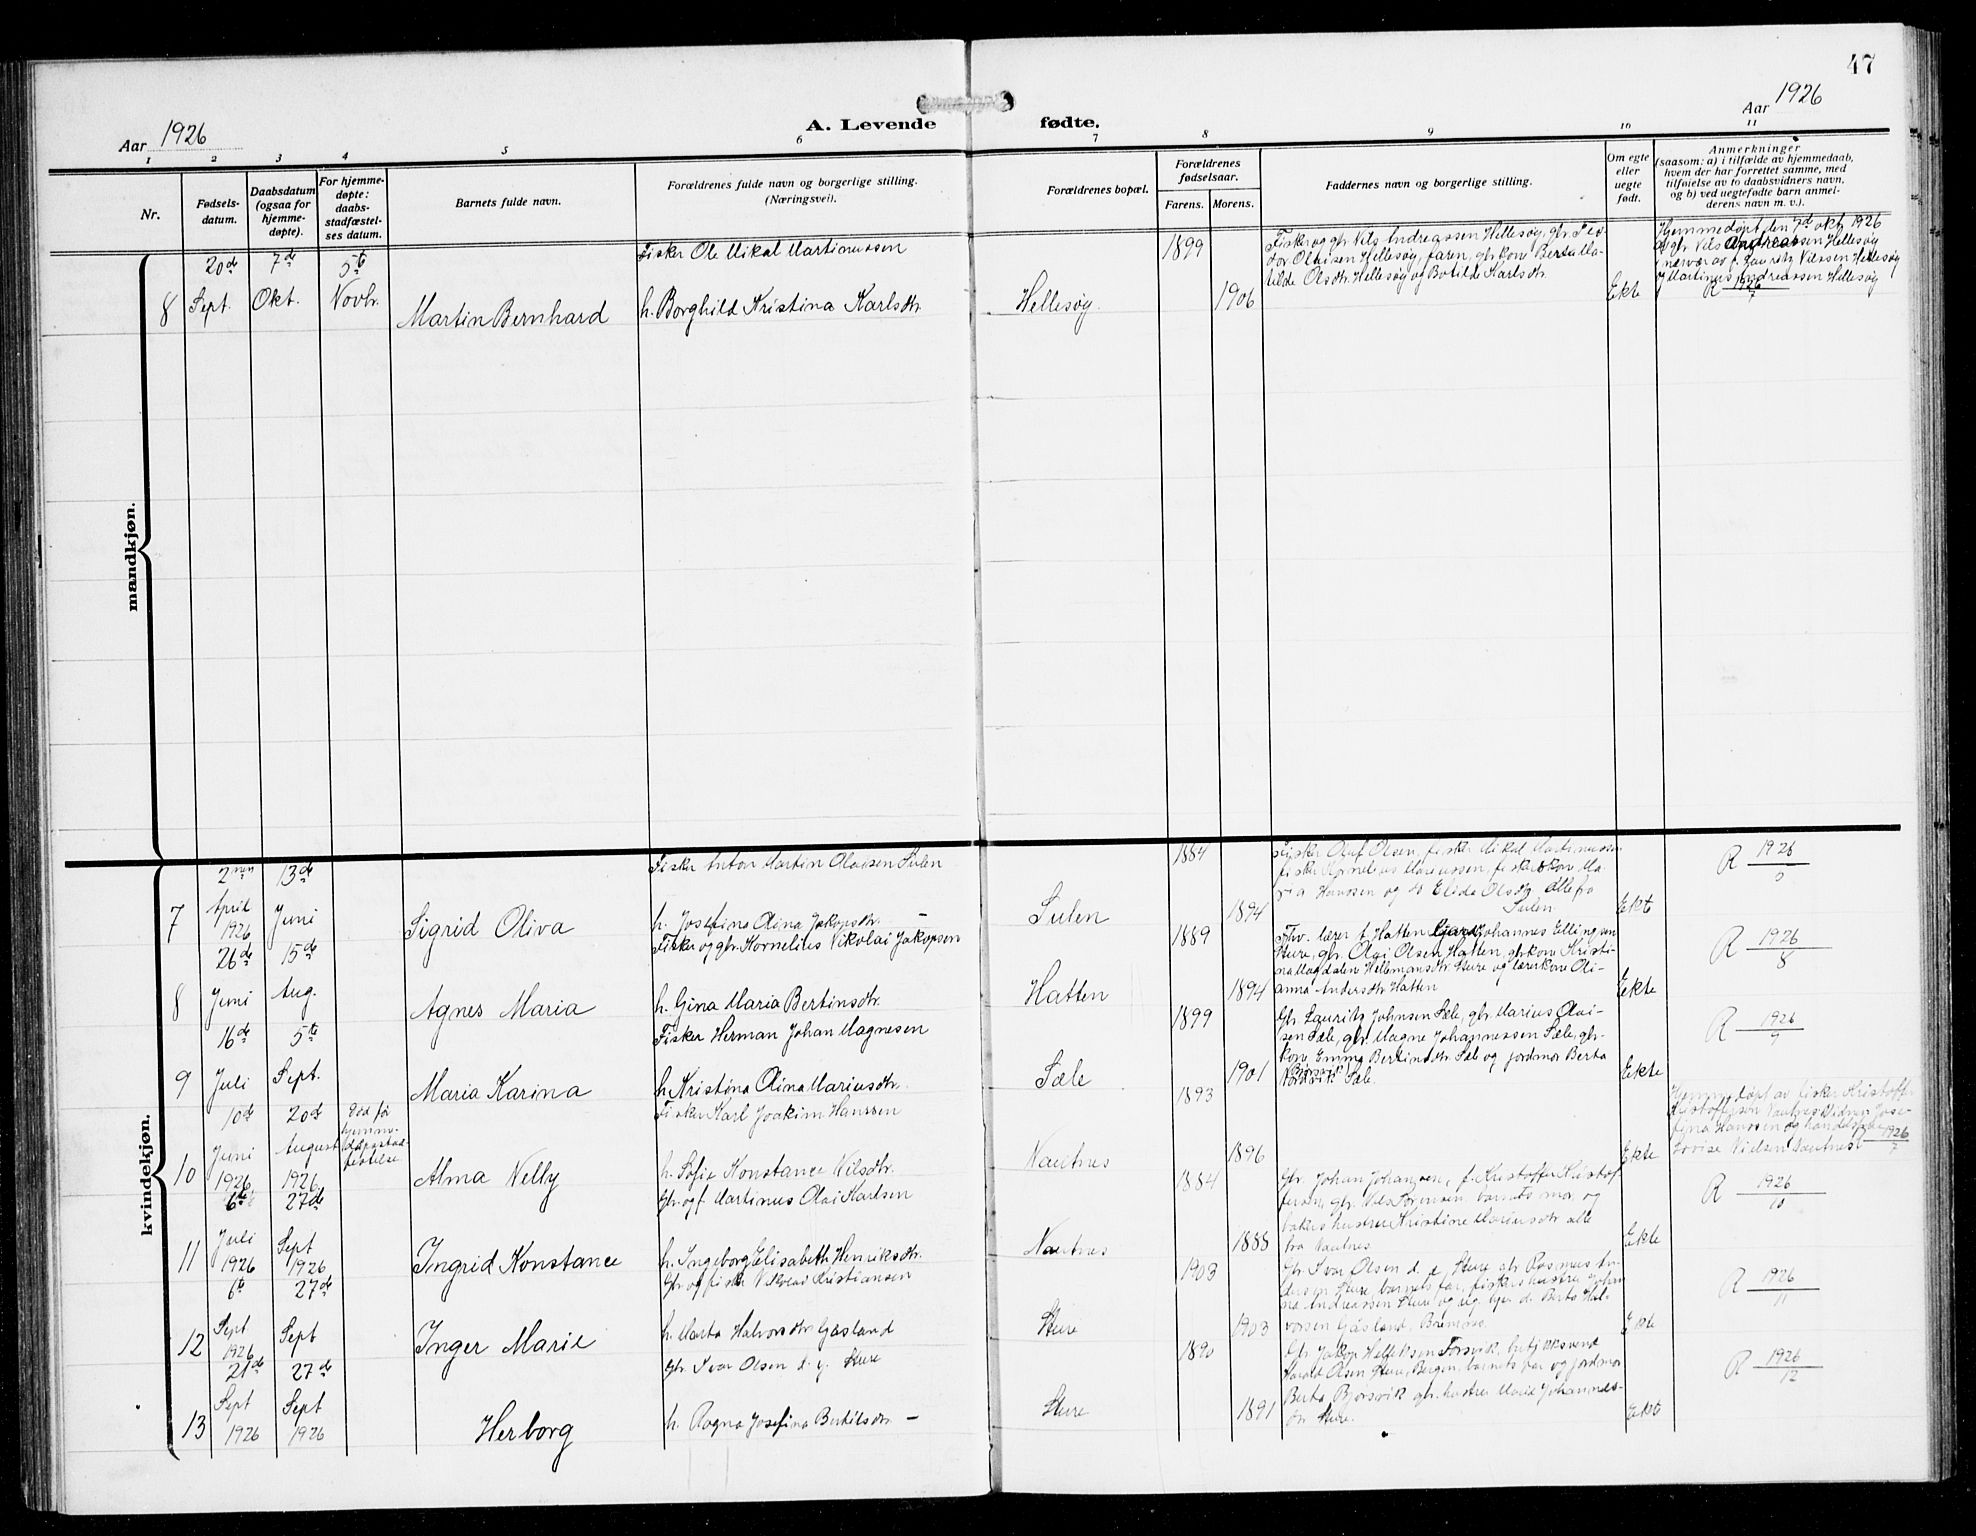 47
Aar 1926
A. Levende fødte.
Aar 1926
1 2 3 4 5 6 7 8 9 10 11
Nr.
Fødsels-
datum.
Daabsdatum
(ogsaa for
hjemme-
døpte).
For hjemme-
døpte:
daabs-
stadfæstel-
ses datum.
Barnets fulde navn.
Forældrenes fulde navn og borgerlige stilling.
(Næringsvei).
Forældrenes bopæl.
Forældrenes
fødselsaar.
Farens. Morens.
Faddernes navn og borgerlige stilling.
Om egte
eller
uegte
født.
Anmerkninger
(saasom: a) i tilfælde av hjemmedaab,
hvem der har forrettet samme, med
tilføielse av to daabsvidners navn,
og b) ved uegtefødte barn anmel-
derens navn m. v.).
mandkjøn.
8
20de
Sept.
7de
Okt.
5te
Novbr.
Martin Bernhard
Fisker Ole Mikal Martinussen
h. Borghild Kristina Karlsdtr.
Hellesøy.
1899
1906
Fisker og gbr. Nils Andreassen Hellesøy, gbr. Teo-
dor Olaisen Hellesøy, faren, gbrkone Berta Ma-
tilde Olsdtr. Hellesøy og Botilde Karlsdtr.
Ekte
Hjemmedøpt den 7de okt. 1926
av gbr. Nils Andreassen Hellesøy
i nærvær av f. Lauritz Nilssen Hellesøy
og Martinus Andreassen Hellesøy
R 1926/7
kvindekjøn.
7
2nen
April
1926
13de
Juni
Sigrid Oliva
Fisker Anton Martin Olaisen Sulen
h. Josefina Olina Jakopsdtr. –
Sulen
1884
1894
Fisker Oluf Olsen, fisker Mikal Martinussen
fisker Kornelius Mariussen, fiskerkone Ma-
ria Hanssen og Elida Olsdtr. alle fra
Sulen
Ekte
R 1926
8
26de
Juni
15de
Aug.
Agnes Maria
Fisker og gbr. Kornelius Nikolai Jakopsen
h. Gina Maria Bertinsdtr.
Hatten
1889
1894
lærer Hatten Johannes Ellingsen
Sture, gbr. Olai Olsen Hatten, gbrkone Kristi-
na Magdalen Hellemansdtr. Sture og lærerkone Oli-
anna Andersdtr. Hatten
Ekte
R 1926/8
9
16de
Juli
5te
Sept.
Maria Karina
Fisker Herman Johan Magnesen
h. Kristina Olina Mariusdtr.
Sæle
1899
1901
Gbr. Lauritz Johnsen Sæle, gbr. Marius Olai-
sen Sæle, gbr. Magne Johannessen Sæle, gbr-
kone Emma Bertinsdtr. Sæle og jordmor Berta
Børsvik Sæle.
Ekte
R 1926/9
10
10de
Juni
1926
20de
August
1926
Død før
hjemme-
daapsstad-
festelse
Alma Nelly
Fisker Karl Joakim Hanssen
h. Sofie Konstance Nilsdtr.
Nautnes
1893
1896
Ekte
Hjemmedøpt av fisker Kristoffer
Kristoffersen Nautnes. Vidner Jose-
fina Hanssen og handelsbetj.
Lovise Nielsen Nautnes. 1926/7
11
6te
Juli
1926
27de
Sept
1926
Ingrid Konstance
Gbr. og f. Martinus Olai Karlsen
h. Ingeborg Elisabeth Henriksdtr.
Nautnes
1884
1888
Gbr. Johan Johansen, f. Kristoffer Kristof-
fersen, gbr. Nils Sørensen, barnets mor, og
bakers hustru Kristine Mariusdtr. alle
fra Nautnes
Ekte
R 1926/10
12
6te
Sept
1926
27de
Sept
1926
Inger Marie
Gbr. og fisker Nikolai Kristiansen
h. Marta Halvorsdtr. Gåsland
Sture
1903
1903
Gbr. Ivar Olsen d. e. Sture, gbr. Rasmus An-
dersen Sture, barnets far, fiskers hustru Johan-
na Andreassen Sture og ug. pige Berta Hal-
vorsen Gåsland, Bremnes.
Ekte
R 1926/11
13
21de
Sept
1926
27de
Sept
1926
Herborg
Gbr. Ivar Olsen d. y. Sture
h. Ragna Josefina Bertilsdtr. –
Sture
1890
1891
Gbr. Jakop Helleksen Torsvik,
Harald Olsen Sture, Bergen, barnets far og jordmor
Berta Børsvik, gbr. hustru Marie Johannes-
dtr. Sture.
Ekte
R 1926/12